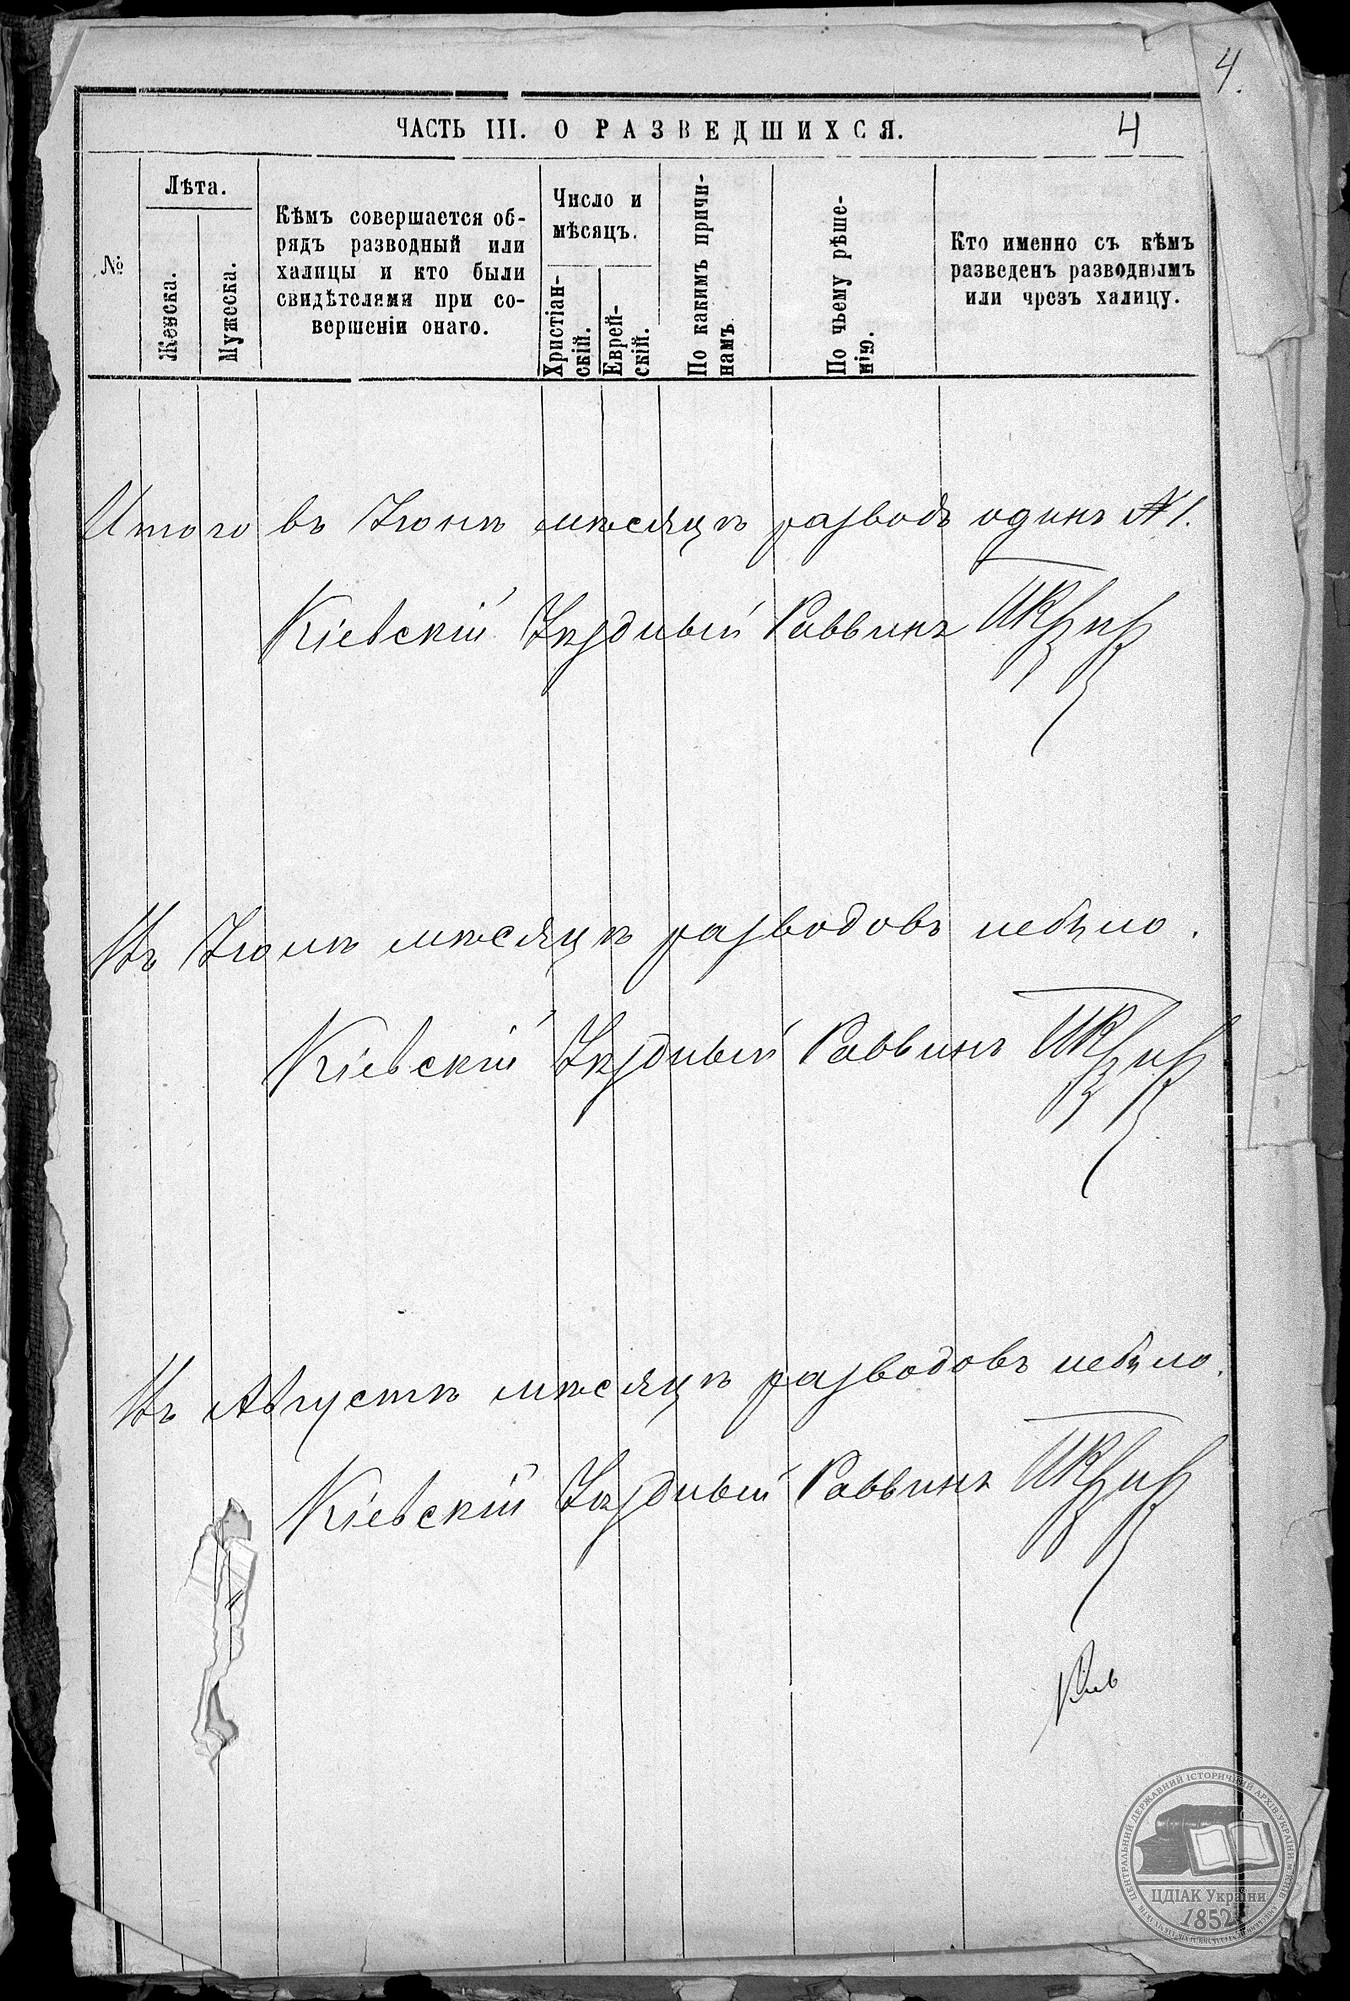 4.
ЧАСТЬ III. О РАЗВЕДШИХСЯ.
4
№
Лѣта.
Женска.
Мужеска.
Кѣмъ совершается об-
рядъ разводный или
халицы и кто были
свидѣтелями при со-
вершеніи онаго.
Число и
мѣсяцъ.
Христіан-
скій.
Еврей-
скій.
По какимъ причи-
намъ.
По чьему рѣше-
нію.
Кто именно съ кѣмъ
разведенъ разводнымъ
или чрезъ халицу.
Итого въ Іюнѣ мѣсяцѣ разводъ одинъ №1.
Кіевскій Уѣздный Раввинъ
Въ Іюлѣ мѣсяцѣ разводовъ небыло.
Кіевскій Уѣздный Раввинъ
Въ Августѣ мѣсяцѣ разводовъ небыло.
Кіевскій Уѣздный Раввинъ
ЦЕНТРАЛЬНИЙ ДЕРЖАВНИЙ ІСТОРИЧНИЙ АРХІВ УКРАЇНИ, м.КИЇВ
ЦДІАК України
1852